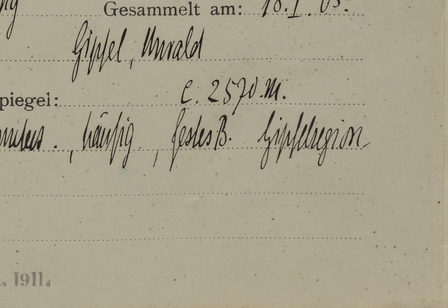 Gesammelt am: 18. I. 05.
Gipfel, Urwald
piegel: c. 2570 m.
, häufig, festes B. Gipfelregion
., 1911.